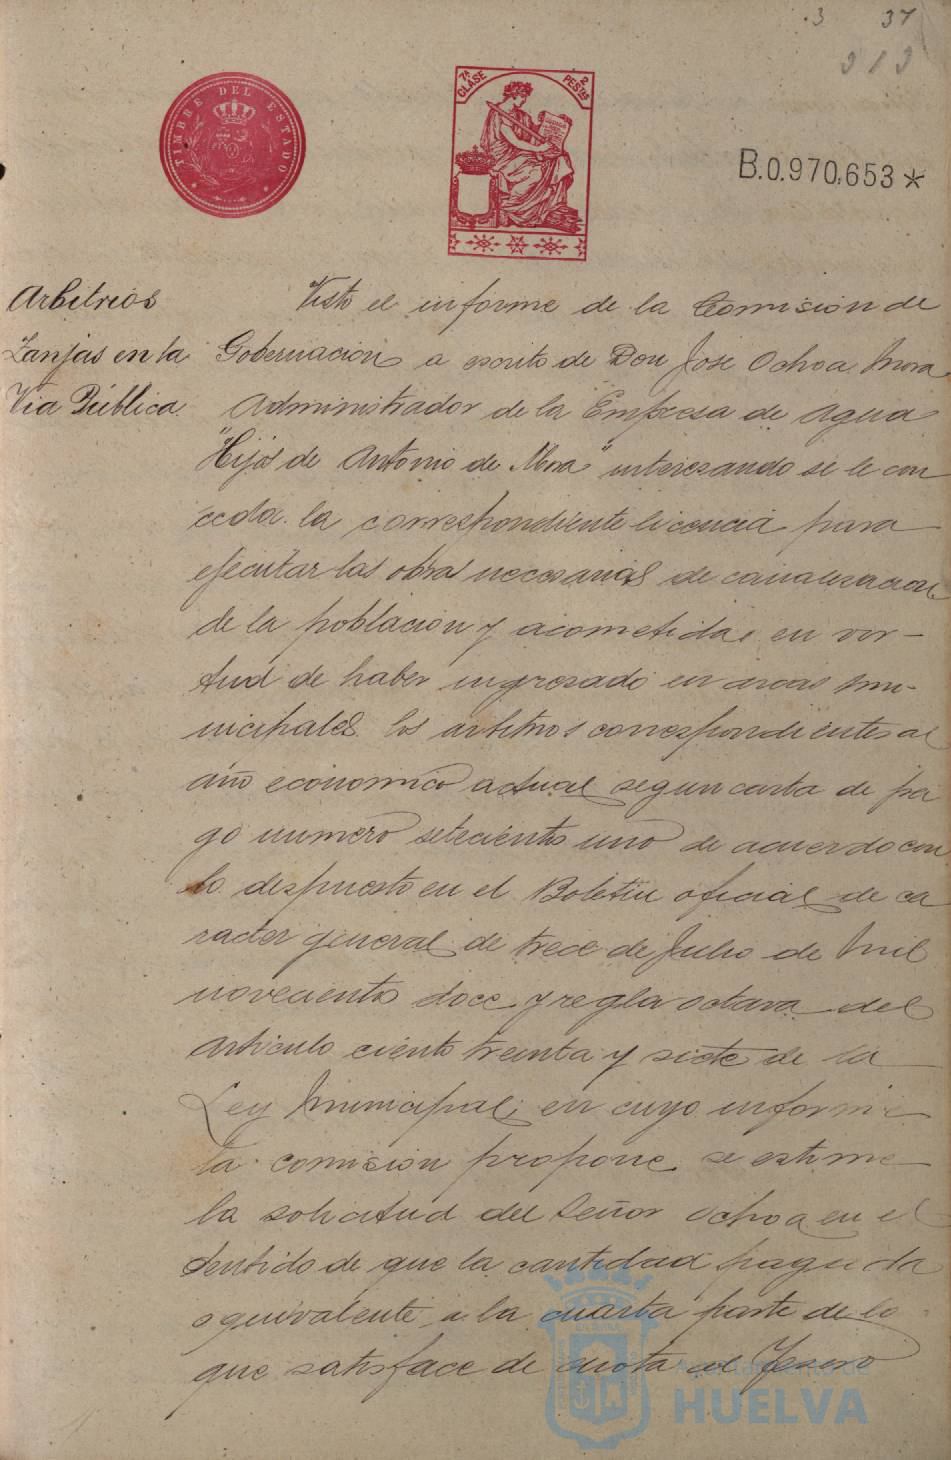 .3 37
313
TIMBRE DEL ESTADO
7ª CLASE
2 PESTAS
B.0.970.653*
Arbitrios
Zanjas en la
Via Pública.
Visto el informe de la Comisión de
Gobernación a escrito de Don José Ochoa Mora
Administrador de la Empresa de Agua
"Hijos de Antonio de Mora" interesando se le con
ceda la correspondiente licencia para
ejecutar las obras necesarias de canalizacion
de la población y acometidas en vir-
tud de haber ingresado en arcas mu-
nicipales los arbitrios correspondientes al
año economico actual segun carta de pa
go numero setecientos uno de acuerdo con
lo dispuesto en el Boletin oficial de ca
racter general de trece de Julio de mil
novecientos doce y regla octava del
articulo ciento treinta y siete de la
Ley Municipal; en cuyo informe
la comisión propone se estime
la solicitud del Señor Ochoa en el
sentido de que la cantidad pagada
equivalente a la cuarta parte de lo
que satisface de cuota al Tesoro
Ayuntamiento de
HUELVA